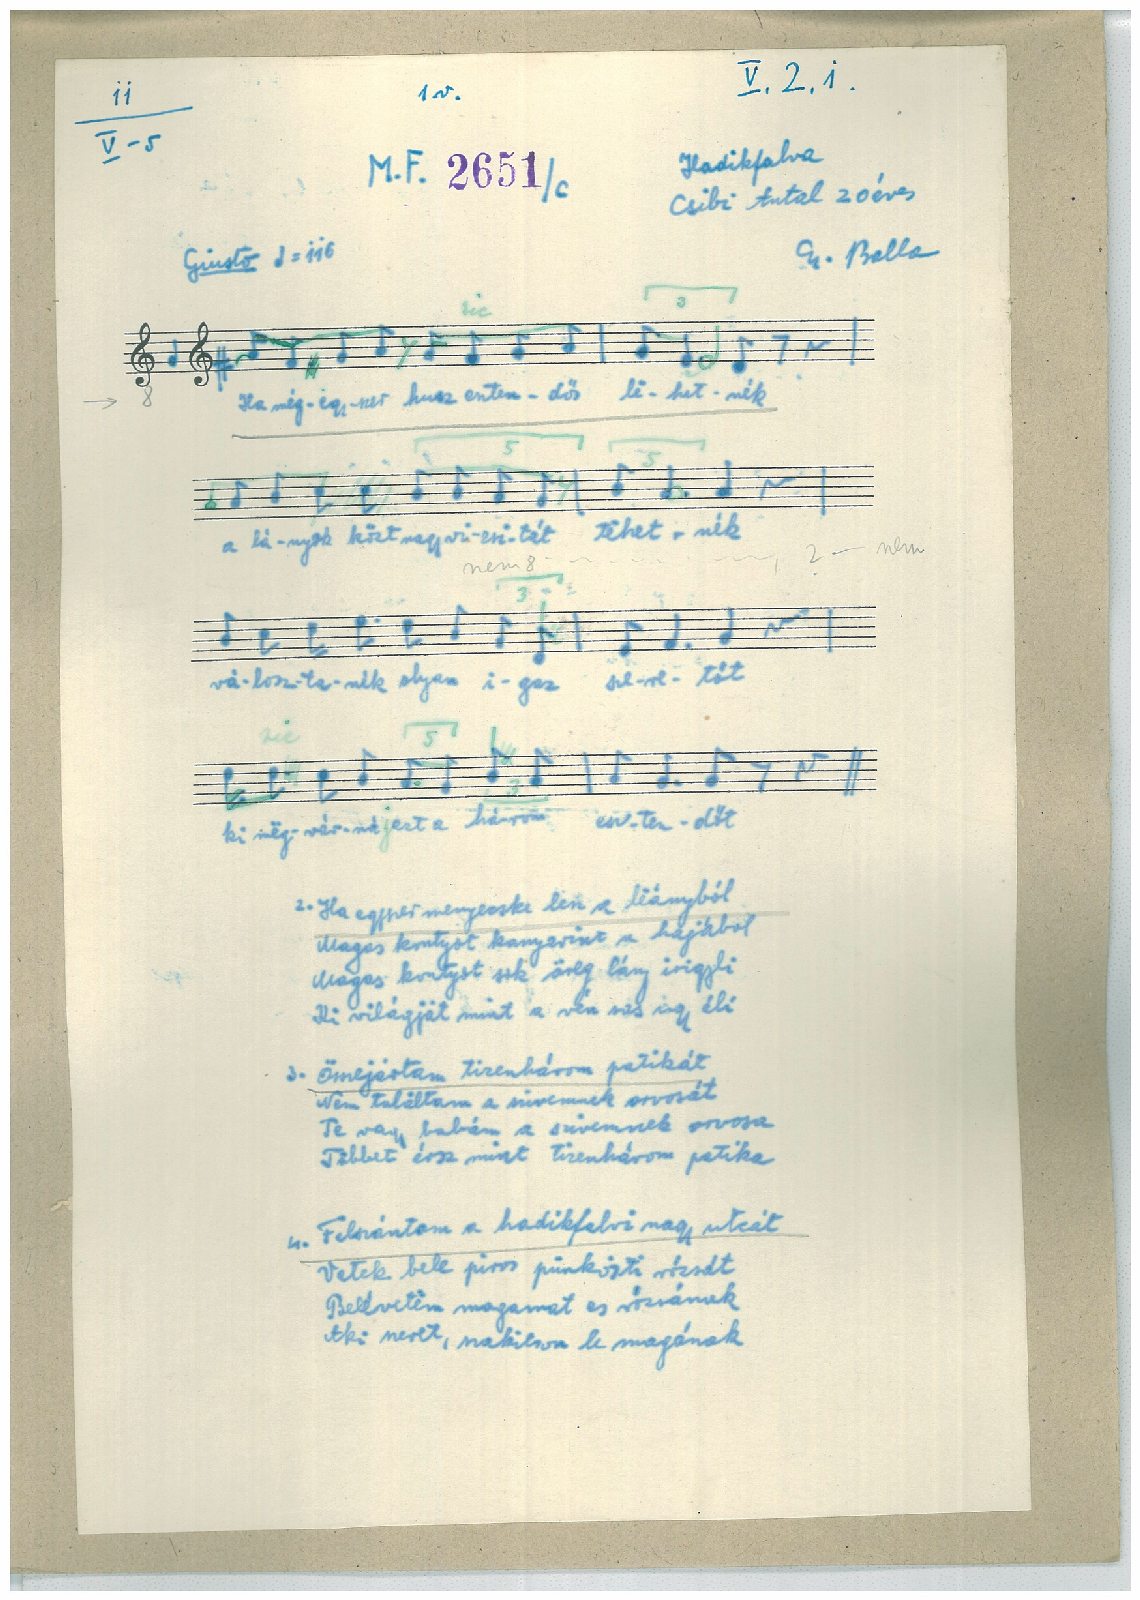 ii
V-5
1v.
V. 2. i.
M.F. 2651/c
Hadikfalva
Csibi Antal 20 éves
Gy. Balla
Giusto ♩=116
sic
3
8
Ha még-egy-szer husz eszten-dős lë-het-nék
5 5
a lá-nyok közt nagy vi-zi-tát tëhet-nék
nem 8 2 nem
3
vá-losz-ta-nék olyan i-gaz sze-re-tőt
sic
5
3
ki mëg-vár-ná jezt a három esz-ten-dőt
2. Ha egyszer menyecske lesz a lëányból
Magas kontyot kanyarint a hajából
Magas kontyot sok öreg lány irigyli
Ki világját mint a vén sas úgy éli
3. Ömejártam tizenhárom patikát
Nem találtam a szivemnek orvosát
Te vagy babám a szivemnek orvosa
Többet érsz mint tizenhárom patika
4. Felszántam a hadikfalvi nagy utcát
Vetek bele piros pünkösti rózsát
Belévetëm magamat es rózsának
Aki szeret, szakiccson le magának